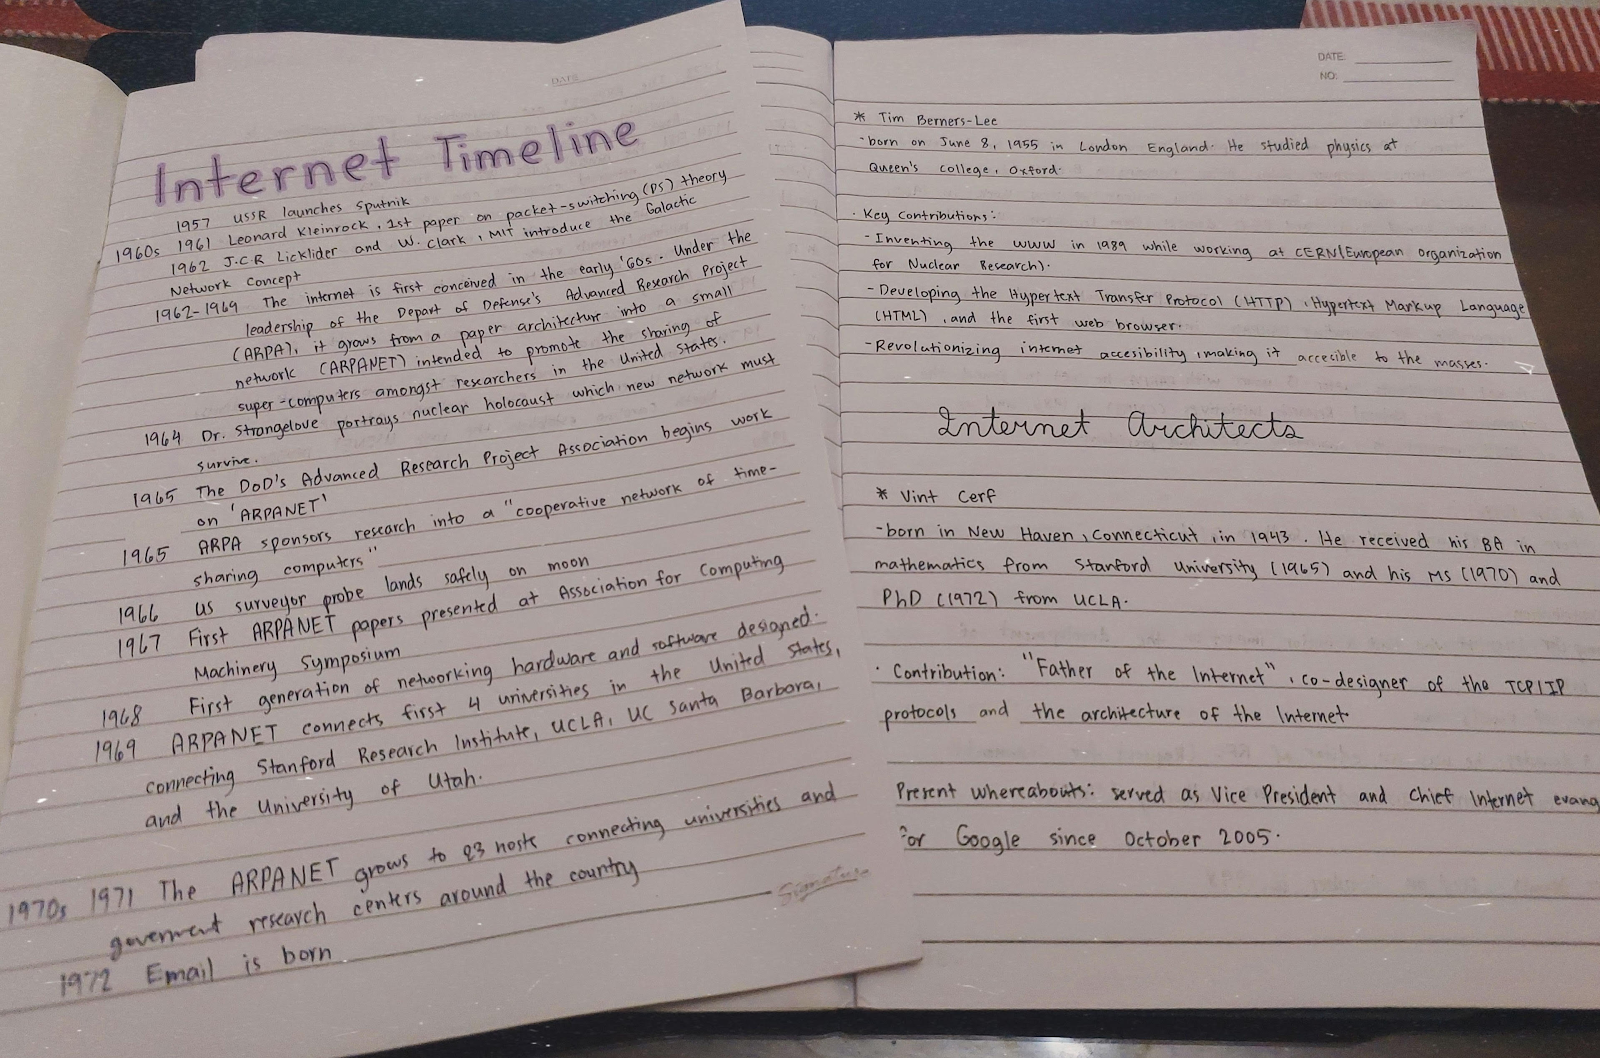 DATE:
Internet Timeline
1957 USSR launches Sputnik
1960s 1961 Leonard Kleinrock, 1st paper on packet-switching (PS) theory
1962 J.C.R Licklider and W. Clark, MIT introduce the Galactic
Network Concept
1962-1969 The internet is first conceived in the early '60s. Under the
leadership of the Depart of Defense's Advanced Research Project
(ARPA), it grows from a paper architecture into a small
network (ARPANET) intended to promote the sharing of
super-computers amongst researchers in the United States.
1964 Dr. Strangelove portrays nuclear holocaust which new network must
survive.
1965 The DoD's Advanced Research Project Association begins work
on 'ARPANET'
1965 ARPA sponsors research into a "cooperative network of time-
sharing computers"
1966 US surveyor probe lands safely on moon
1967 First ARPANET papers presented at Association for Computing
Machinery Symposium
1968 First generation of networking hardware and software designed.
1969 ARPANET connects first 4 universities in the United States,
connecting Stanford Research Institute, UCLA, UC Santa Barbara,
and the University of Utah.
1970s 1971 The ARPANET grows to 23 hosts connecting universities and
goverment research centers around the country
1972 Email is born
Signature
DATE:
NO:
* Tim Berners-Lee
-born on June 8, 1955 in London England. He studied physics at
Queen's college, Oxford.
· Key Contributions:
-Inventing the WWW in 1989 while working at CERN(European Organization
for Nuclear Research).
-Developing the Hypertext Transfer Protocol (HTTP), Hypertext Markup Language
(HTML), and the first web browser.
-Revolutionizing internet accesibility, making it accecible to the masses.
Internet Architects
* Vint Cerf
-born in New Haven, Connecticut, in 1943. He received his BA in
mathematics from Stanford University (1965) and his MS (1970) and
PhD (1972) from UCLA.
· Contribution: "Father of the Internet", co-designer of the TCP/IP
protocols and the architecture of the Internet
Present whereabouts: served as Vice President and Chief Internet evang
for Google since October 2005.